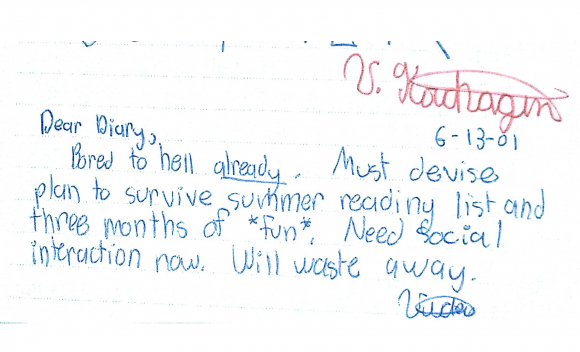 V. Korchagin
6-13-01
Dear Diary,
Bored to hell already. Must devise
plan to survive summer reading list and
three months of *fun*. Need social
interaction now. Will waste away.